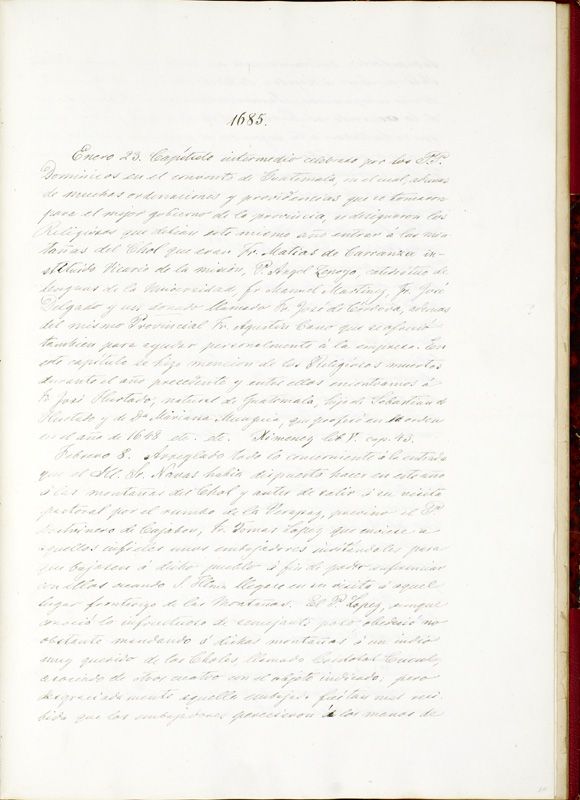 1685.
Enero 23. Capítulo intermedio celebrado por los P.P.
Dominicos en el convento de Guatemala, en el cual, además
de muchas ordenaciones y providencias que se tomaron
para el mejor gobierno de la provincia, se designaron los
Religiosos que debian este mismo año entrar á las mon-
tañas del Chol que eran Fr. Matias de Carranza in-
stituido Vicario de la mision, P. Angel Zenoyo, catedratico de
lenguas de la Universidad, fr Manuel Martinez, fr. José
Delgado y un donado llamado Fr. José de Córdova, ademas
del mismo Provincial Fr. Agustin Cano que se ofreció
tambien para ayudar personalmente á la empresa. En
este capítulo se hizo mencion de los Religiosos muertos
durante el año precedente y entre ellos encontramos á
fr José Hurtado, natural de Guatemala, hijo de Sebastian de
Hurtado y de Da. Mariana Munguia, que profesó en la orden
en el año de 1648 etc. etc. Ximenez lib V. cap. 43.
Febrero 8. Arreglado todo lo concerniente á la entrada
que el Ill. Sr. Navas habia dispuesto hacer en este año
á las montañas del Chol y antes de salir á su visita
pastoral por el rumbo de la Verapaz, previno el Pe.
doctrinero de Cajabon, fr Tomas Lopez que enviase a
aquellos infieles unos embajadores invitándoles para
que bajasen á dicho pueblo á fin de poder conferenciar
con ellos cuando S. Illma llegase en su visita á aquel
lugar fronterizo de las Montañas. El Pe. Lopez, aunque
conoció lo infructuoso de semejante paso obedeció no
obstante mandando á dichas montañas á un indio
muy querido de los Choles, llamado Cristobal
asociado de otros cuatro con el objeto indicado; pero
desgraciadamente aquella embajada fué tan mal reci-
bida que los embajadores perecieron á las manos de